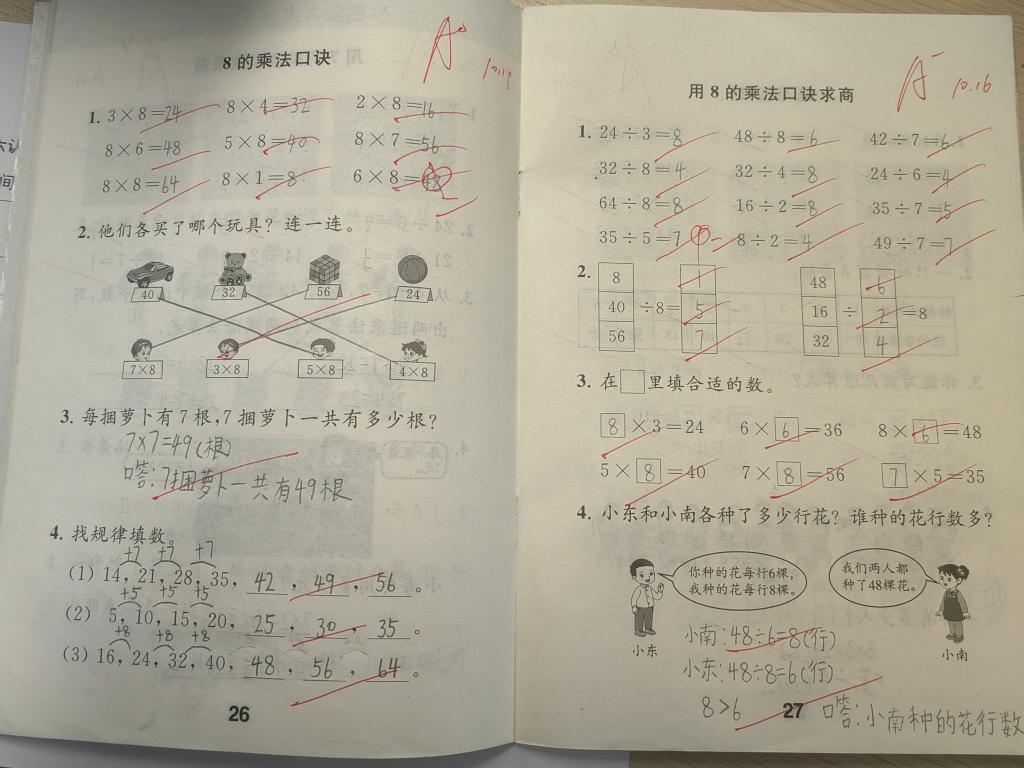 8的乘法口诀
A
1. 3×8=24 8×4=32 2×8=16
8×6=48 5×8=40 8×7=56
8×8=64 8×1=8 6×8=48
2. 他们各买了哪个玩具？连一连。
40 32 56 24
7×8 3×8 5×8 4×8
3. 每捆萝卜有7根,7捆萝卜一共有多少根？
7×7=49(根)
口答:7捆萝卜一共有49根
4. 找规律填数。
+7 +7 +7
(1) 14, 21, 28, 35, 42, 49, 56。
+5 +5 +5
(2) 5, 10, 15, 20, 25, 30, 35。
+8 +8 +8
(3) 16, 24, 32, 40, 48, 56, 64。
26
用8的乘法口诀求商
A- 10.16
1. 24÷3=8 48÷8=6 42÷7=6
32÷8=4 32÷4=8 24÷6=4
64÷8=8 16÷2=8 35÷7=5
35÷5=7 8÷2=4 49÷7=7
2. 8 1 48 6
40 ÷8= 5 16 ÷ 2 =8
56 7 32 4
3. 在□里填合适的数。
8×3=24 6×6=36 8×6=48
5×8=40 7×8=56 7×5=35
4. 小东和小南各种了多少行花？谁种的花行数多？
你种的花每行6棵,
我种的花每行8棵。
我们两人都
种了48棵花。
小东
小南
小南:48÷6=8(行)
小东:48÷8=6(行)
8>6
口答:小南种的花行数
27